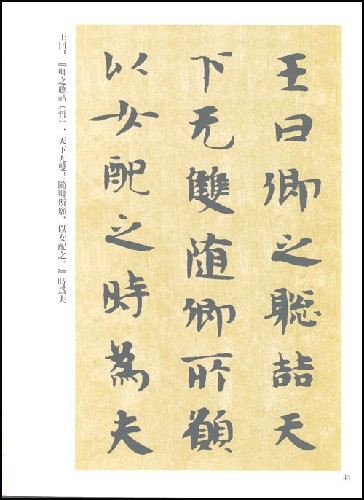 王曰卿之聡喆天
下无雙随卿所願
以女配之時為夫
王曰：『卿之聰喆（哲），天下无雙。隨卿所願，以女配之。』時爲夫